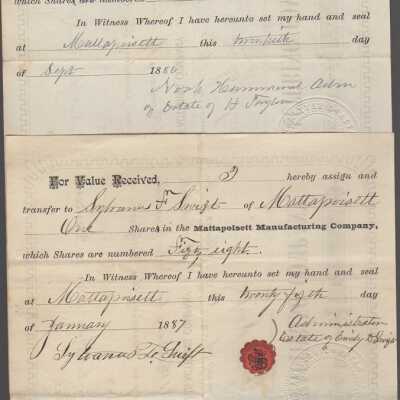 which Shares are numbered
In Witness Whereof I have hereunto set my hand and seal
at Mattapoisett this twentieth day
of Sept 1886
Noah Hammond Adm
of Estate of H
For Value Received, I hereby assign and
transfer to Sylvanus F Swift of Mattapoisett
One Shares in the Mattapoisett Manufacturing Company,
which Shares are numbered Fifty eight.
In Witness Whereof I have hereunto set my hand and seal
at Mattapoisett this twenty fifth day
of January 1887
Administrator
Sylvanus Swift
Estate of Emily D Swift